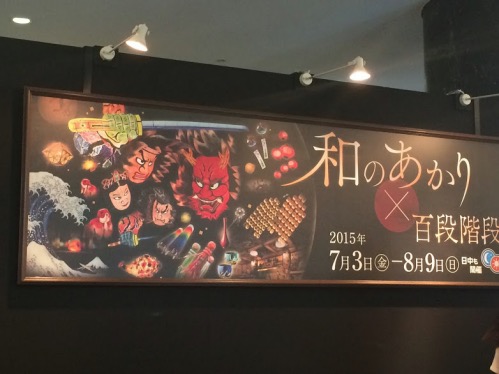 和のあかり
×
百段階段
2015年
7月3日(金)−8月9日(日)
日中も
開催